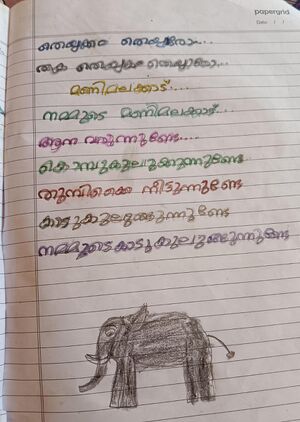 papergrid
Date: / /
തെയ്യക്കം തെയ്യാരോ....
തക തെയ്യകം തെയ്യാരോ...
മണിമലക്കാട്....
നമ്മുടെ മണിമലക്കാട്...
ആന വരുന്നുണ്ടേ.....
കൊമ്പുകുലുക്കുന്നുണ്ടേ
തുമ്പിക്കൈ നീട്ടുന്നുണ്ടേ
കാടുകുലുങ്ങുന്നുണ്ടേ
നമ്മുടെകാടുകുലുങ്ങുന്നുണ്ടേ